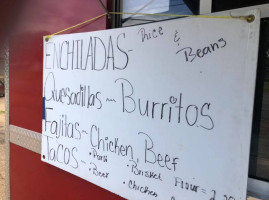 ENCHILADAS - Rice &
Beans
Quesadillas - Burritos
Fajitas - Chicken, Beef
Tacos - 
Beef
Chicken
Flour = 2